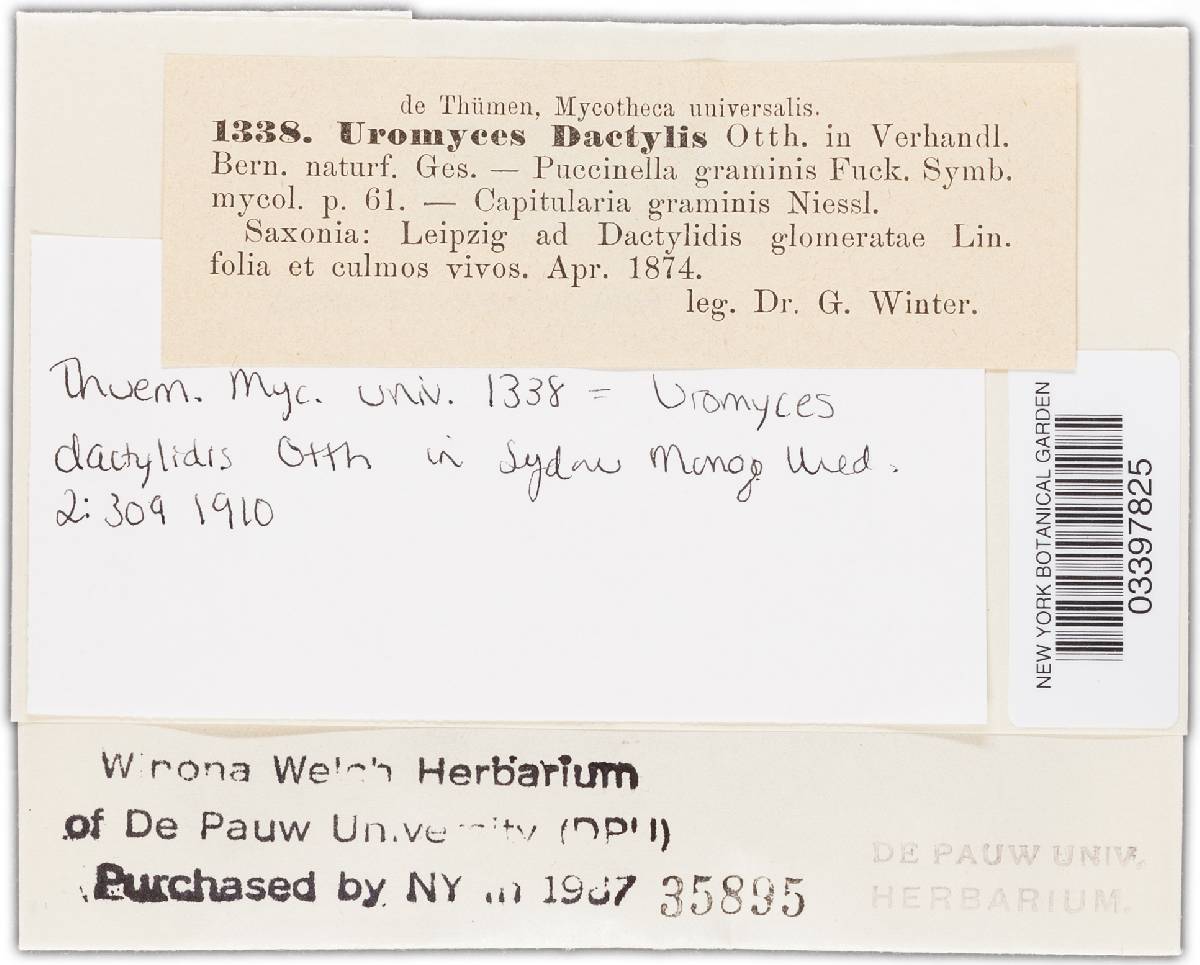 de Thümen, Mycotheca universalis.
1338. Uromyces Dactylis Otth. in Verhandl.
Bern. naturf. Ges. — Puccinella graminis Fuck. Symb.
mycol. p. 61. — Capitularia graminis Niessl.
Saxonia: Leipzig ad Dactylidis glomeratae Lin.
folia et culmos vivos. Apr. 1874.
leg. Dr. G. Winter.
Thuem. Myc. univ. 1338 = Uromyces
dactylidis Otth in Sydow Monog. Ured.
2: 309 1910
NEW YORK BOTANICAL GARDEN
03397825
Winona Welch Herbarium
of De Pauw University (DPU)
Purchased by NY in 1987 35895
DE PAUW UNIV.
HERBARIUM.